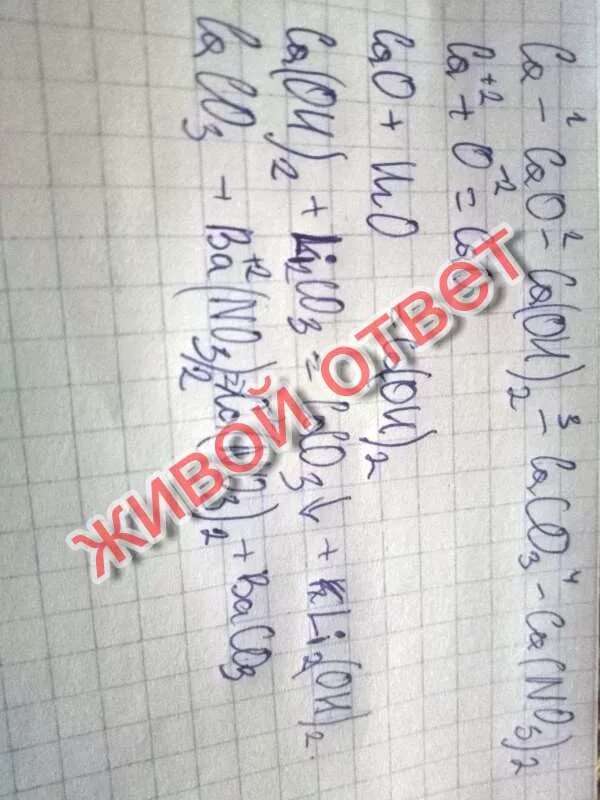 Ca -¹ CaO -² Ca(OH)₂ -³ CaCO₃ -⁴ Ca(NO₃)₂
Ca⁺² + O⁻² = CaO
CaO + H₂O (OH)₂
Ca(OH)₂ + Li₂CO₃ = CaCO₃↓ + Li₂(OH)₂.
CaCO₃ + Ba⁺²(NO₃)₂ = )₂ + BaCO₃
ЖИВОЙ ОТВЕТ